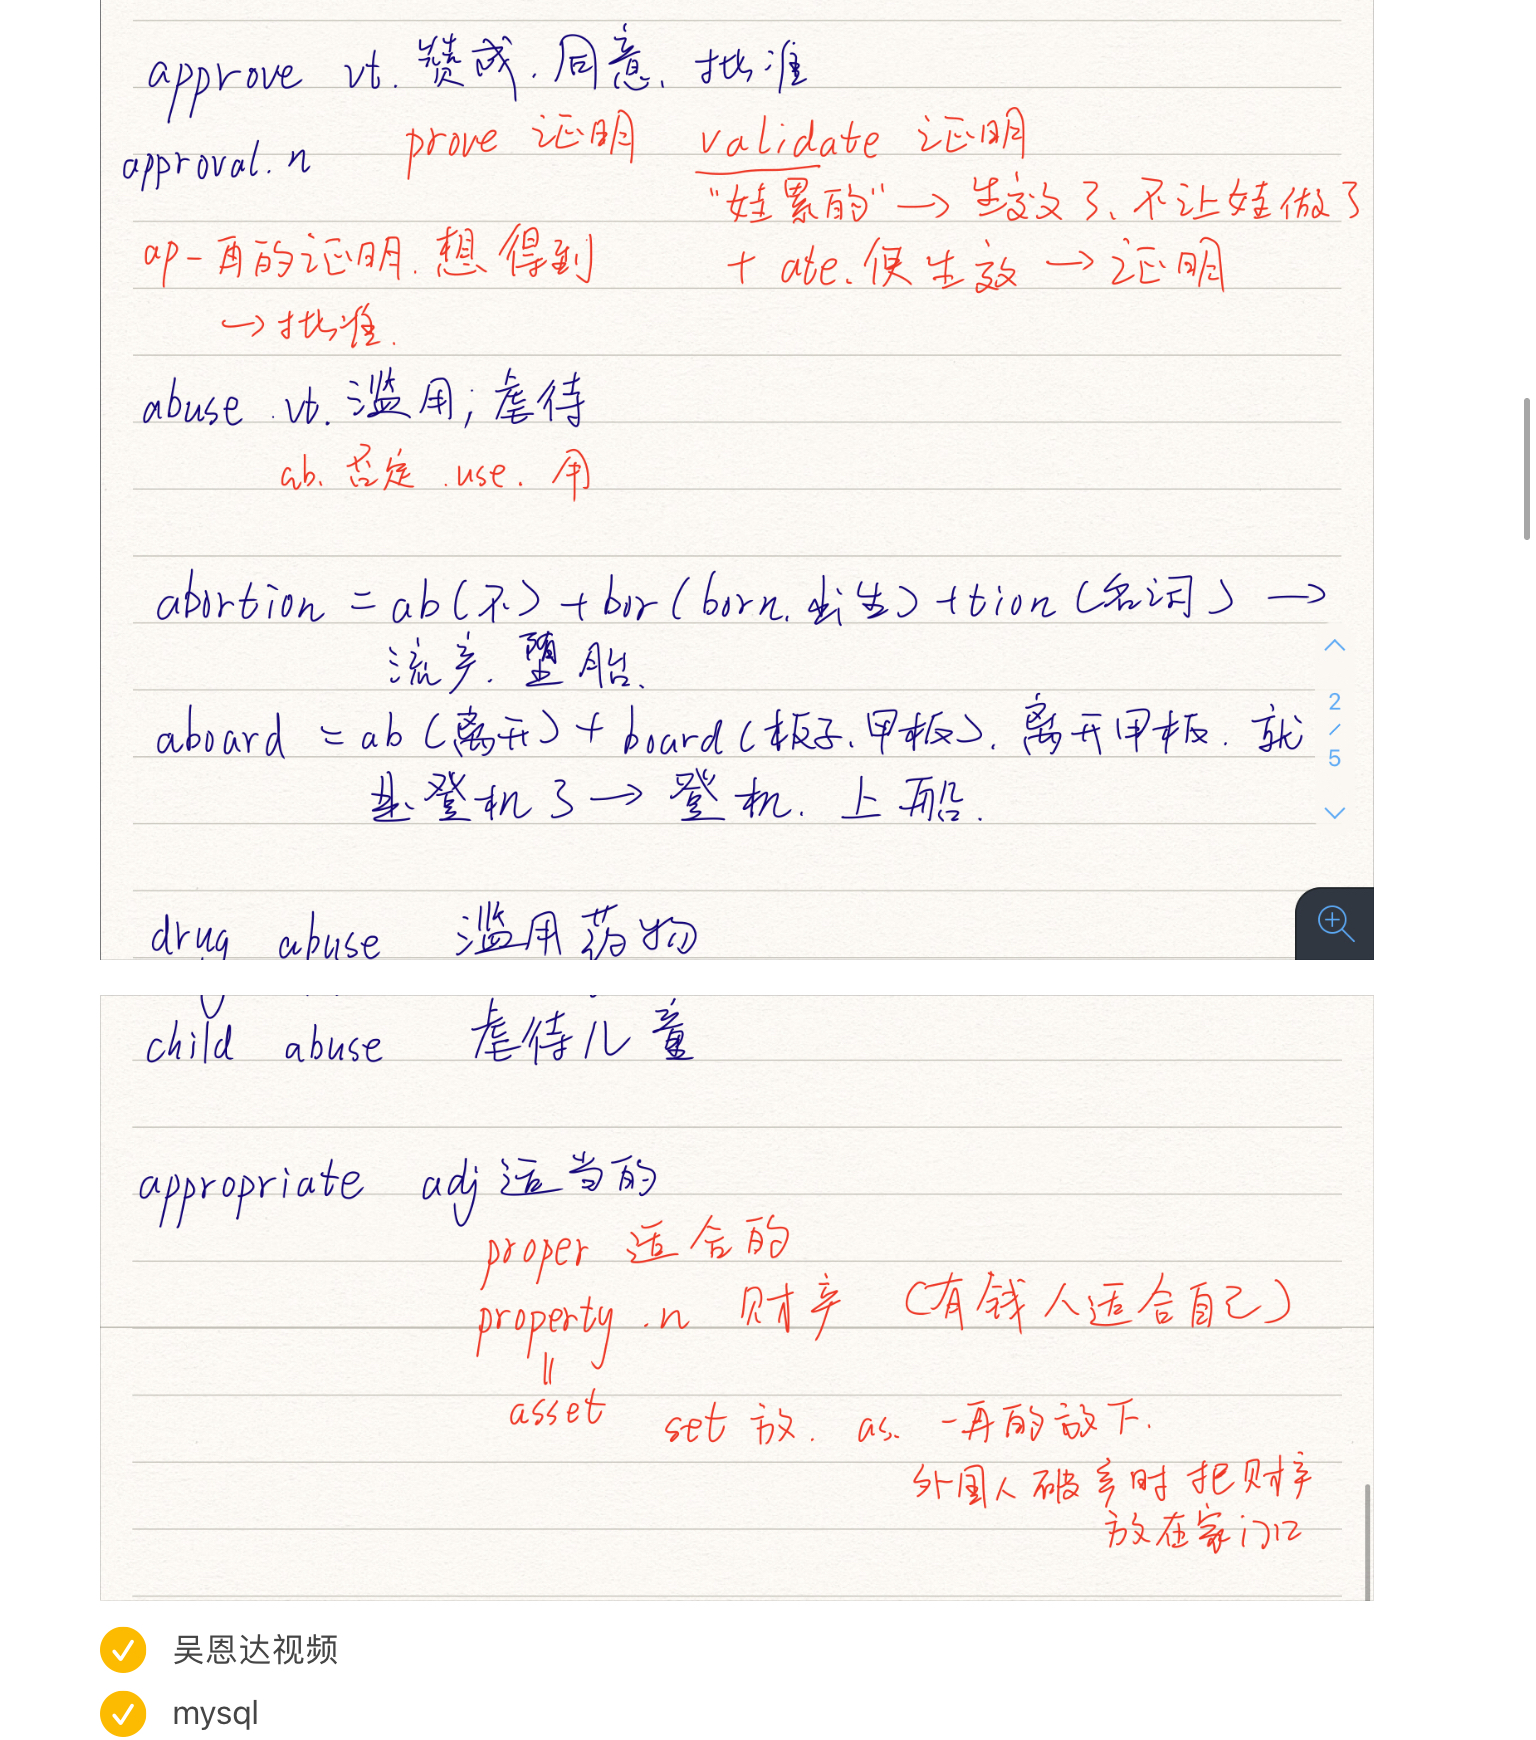 approve vt. 赞成. 同意、批准
prove 证明 validate 证明
approval. n
"娃累的" → 生效了、不让娃做了
ap 一再的证明. 想得到
+ ate. 使生效 → 证明
→ 批准.
abuse . vt. 滥用; 虐待
ab. 否定 . use. 用
abortion = ab (不) + bor (born. 出生) + tion (名词) →
流产. 堕胎.
aboard = ab (离开) + board (板子、甲板). 离开甲板. 就
是登机了 → 登机. 上船.
2
/
5
drug abuse 滥用药物
child abuse 虐待儿童
appropriate adj 适当的
proper 适合的
property . n 财产 (有钱人适合自己)
=
asset set 放. as. 一再的放下.
外国人破产时把财产
放在家门口
吴恩达视频
mysql